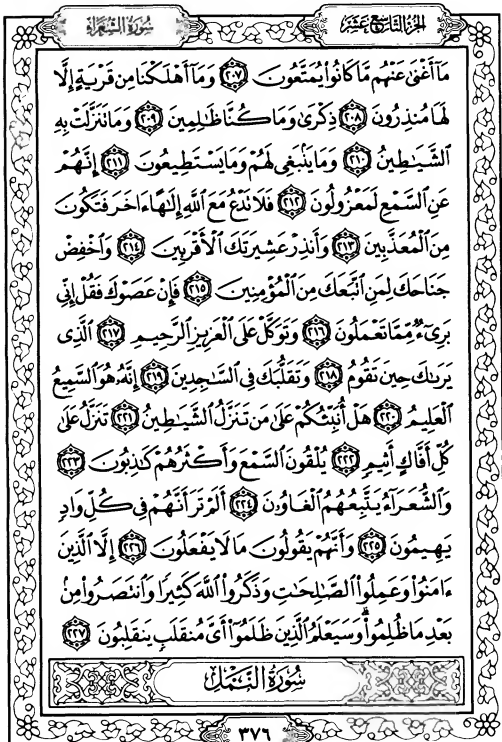 سُورَةُ الشُّعَرَاءِ
الجزء التاسع عشر
مَآ أَغْنَىٰ عَنْهُم مَّا كَانُوا۟ يُمَتَّعُونَ ٢٠٧ وَمَآ أَهْلَكْنَا مِن قَرْيَةٍ إِلَّا
لَهَا مُنذِرُونَ ٢٠٨ ذِكْرَىٰ وَمَا كُنَّا ظَـٰلِمِينَ ٢٠٩ وَمَا تَنَزَّلَتْ بِهِ
ٱلشَّيَـٰطِينُ ٢١٠ وَمَا يَنۢبَغِى لَهُمْ وَمَا يَسْتَطِيعُونَ ٢١١ إِنَّهُمْ
عَنِ ٱلسَّمْعِ لَمَعْزُولُونَ ٢١٢ فَلَا تَدْعُ مَعَ ٱللَّهِ إِلَـٰهًا ءَاخَرَ فَتَكُونَ
مِنَ ٱلْمُعَذَّبِينَ ٢١٣ وَأَنذِرْ عَشِيرَتَكَ ٱلْأَقْرَبِينَ ٢١٤ وَٱخْفِضْ
جَنَاحَكَ لِمَنِ ٱتَّبَعَكَ مِنَ ٱلْمُؤْمِنِينَ ٢١٥ فَإِنْ عَصَوْكَ فَقُلْ إِنِّى
بَرِىٓءٌ مِّمَّا تَعْمَلُونَ ٢١٦ وَتَوَكَّلْ عَلَى ٱلْعَزِيزِ ٱلرَّحِيمِ ٢١٧ ٱلَّذِى
يَرَىٰكَ حِينَ تَقُومُ ٢١٨ وَتَقَلُّبَكَ فِى ٱلسَّـٰجِدِينَ ٢١٩ إِنَّهُۥ هُوَ ٱلسَّمِيعُ
ٱلْعَلِيمُ ٢٢٠ هَلْ أُنَبِّئُكُمْ عَلَىٰ مَن تَنَزَّلُ ٱلشَّيَـٰطِينُ ٢٢١ تَنَزَّلُ عَلَىٰ
كُلِّ أَفَّاكٍ أَثِيمٍ ٢٢٢ يُلْقُونَ ٱلسَّمْعَ وَأَكْثَرُهُمْ كَـٰذِبُونَ ٢٢٣
وَٱلشُّعَرَآءُ يَتَّبِعُهُمُ ٱلْغَاوُۥنَ ٢٢٤ أَلَمْ تَرَ أَنَّهُمْ فِى كُلِّ وَادٍ
يَهِيمُونَ ٢٢٥ وَأَنَّهُمْ يَقُولُونَ مَا لَا يَفْعَلُونَ ٢٢٦ إِلَّا ٱلَّذِينَ
ءَامَنُوا۟ وَعَمِلُوا۟ ٱلصَّـٰلِحَـٰتِ وَذَكَرُوا۟ ٱللَّهَ كَثِيرًا وَٱنتَصَرُوا۟ مِنۢ
بَعْدِ مَا ظُلِمُوا۟ ۗ وَسَيَعْلَمُ ٱلَّذِينَ ظَلَمُوٓا۟ أَىَّ مُنقَلَبٍ يَنقَلِبُونَ ٢٢٧
سُورَةُ النَّمْلِ
٣٧٦